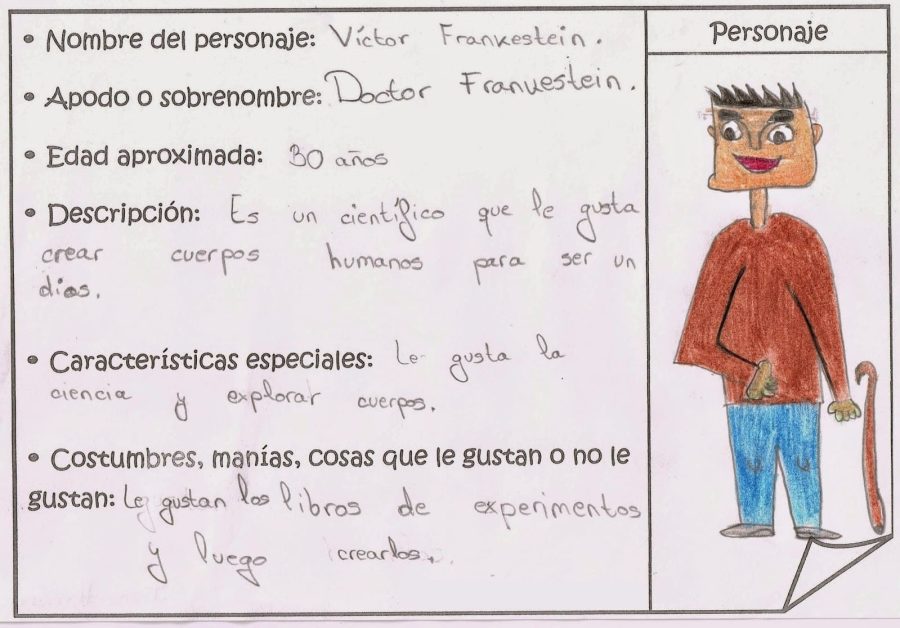 • Nombre del personaje: Víctor Frankestein.
• Apodo o sobrenombre: Doctor Frankestein.
• Edad aproximada: 30 años
• Descripción: Es un científico que le gusta
crear cuerpos humanos para ser un
dios.
• Características especiales: Le gusta la
ciencia y explorar cuerpos.
• Costumbres, manías, cosas que le gustan o no le
gustan: Le gustan los libros de experimentos
y luego crearlos.
Personaje